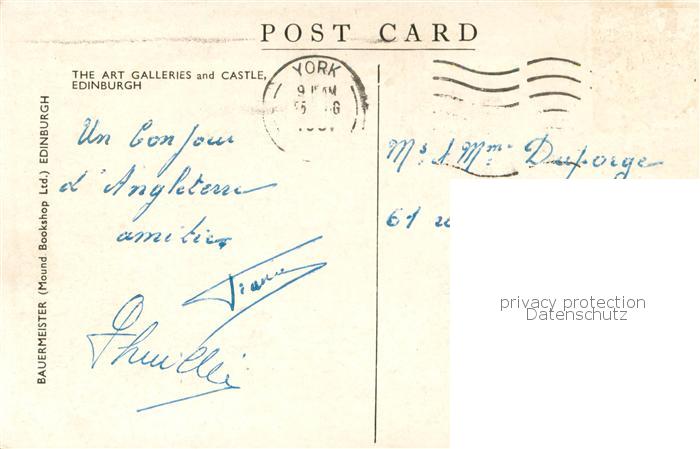 POST CARD
THE ART GALLERIES and CASTLE,
EDINBURGH
BAUERMEISTER (Mound Bookshop Ltd.) EDINBURGH
YORK
9 15AM
Un bonjour
d'Angleterre
amitiés
Mr & Mme Duforge
61
privacy protection
Datenschutz